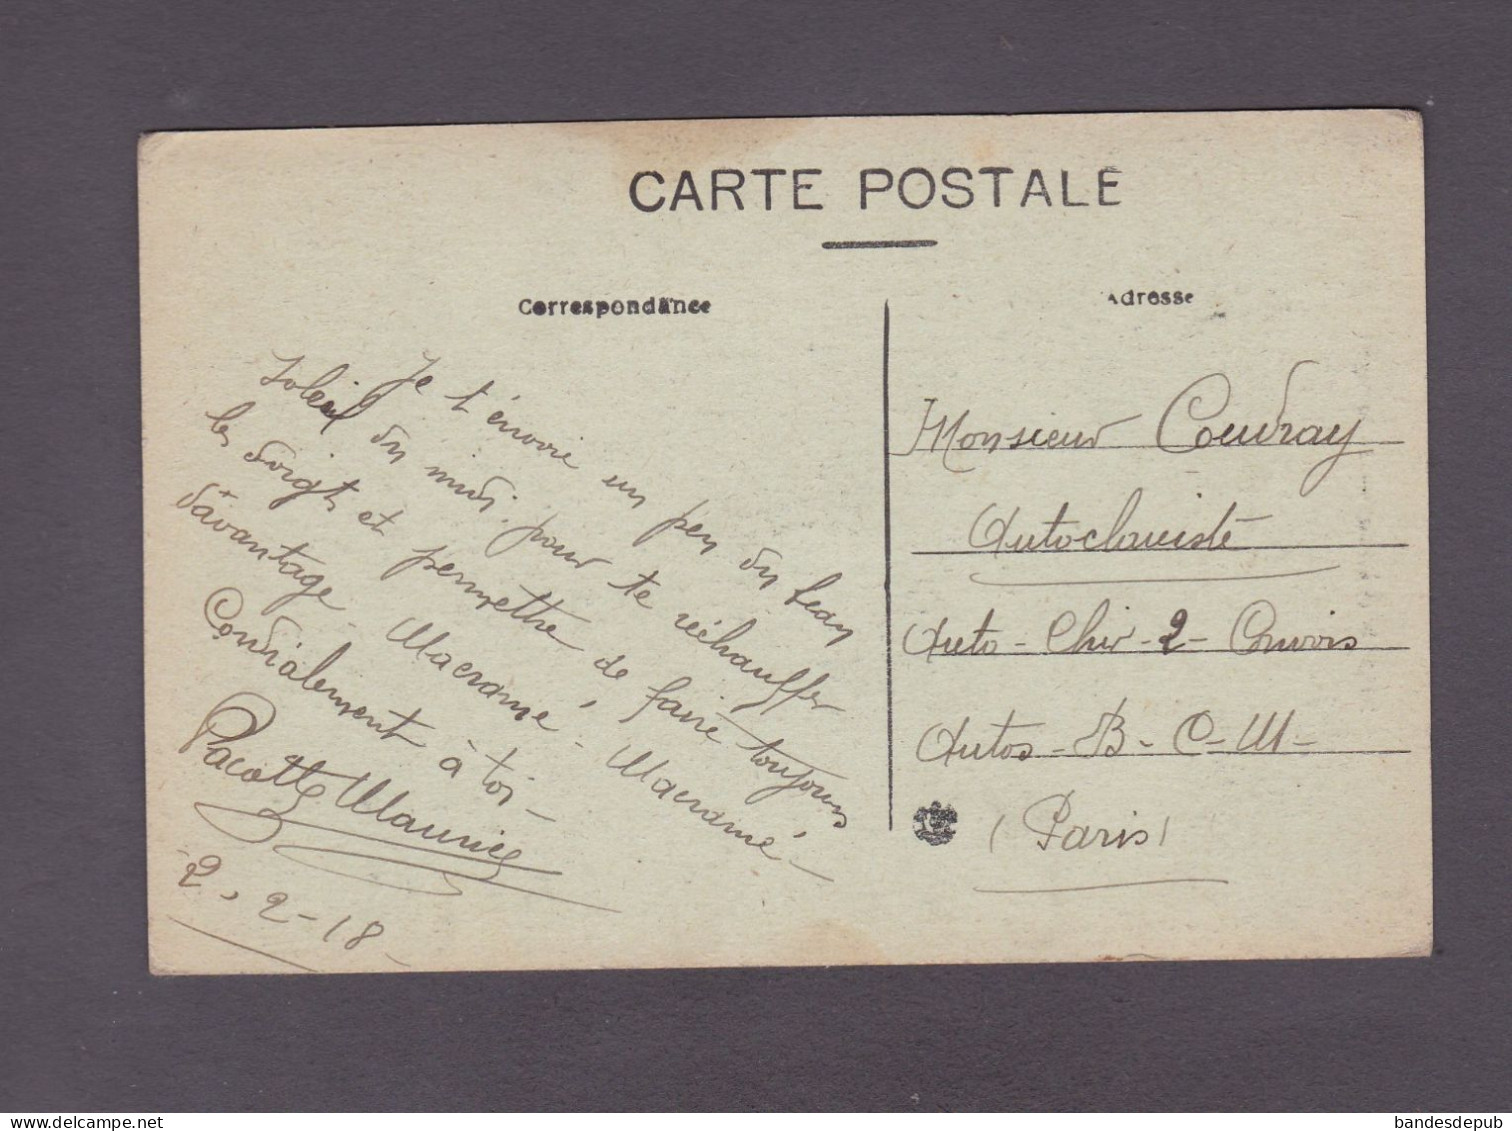 CARTE POSTALE
Correspondance
Je t'envoie un peu du beau
soleil du midi, pour te réchauffer
les doigts et permettre de faire toujours
d'avantage - Macramé - Macramé -
Cordialement à toi -
Pacotte Maurice
2-2-18-
Adresse
Monsieur Coudray
Autoclaviste
Auto-Chir-2-Convois
Autos-B-C-M-
(Paris)
bandesdepub